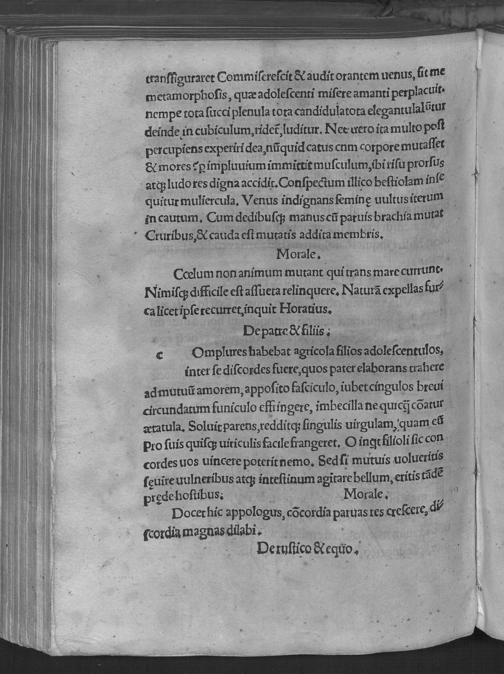 transfiguraret Commiserescit & audit orantem uenus, fit me
metamorphosis, quæ adolescenti misere amanti perplacuit.
nempe tota succi plenula tota candidula tota elegantula Itur
deinde in cubiculum, ridet, luditur. Nec uero ita multo post
percupiens experiri dea, nũquid catus cnm corpore mutasset
& mores p impluuium immittit musculum, ibi risu prorsus
atq; ludo res digna accidit. Conspectum illico bestiolam inse
quitur muliercula. Venus indignans feminę uultus iterum
in cautum. Cum dedibusq; manus cũ paruis brachia mutat
Cruribus, & cauda est mutatis addita membris.
Morale.
Cœlum non animum mutant qui trans mare currunt.
Nimisq; difficile est assueta relinquere. Naturã expellas fur/
ca licet ipse recurret, inquit Horatius.
De patre & filiis.
c Omplures habebat agricola filios adolescentulos,
inter se discordes fuere, quos pater elaborans trahere
ad mutuũ amorem, apposito fasciculo, iubet cingulos breui
circundatum funiculo effringere, imbecilla ne quicq̃ cõatur
ætatula. Soluit parens, redditq; singulis uirgulam, quam cũ
pro suis quisq; uiriculis facile frangeret. O inqt filioli sic con
cordes uos uincere poterit nemo. Sed si mutuis uolueritis
sęuire uulneribus atq; intestinum agitare bellum, eritis tãdẽ
pręde hostibus. Morale.
Docet hic appologus, cõcordia paruas res crescere, di/
scordia magnas dilabi.
De rustico & equo.